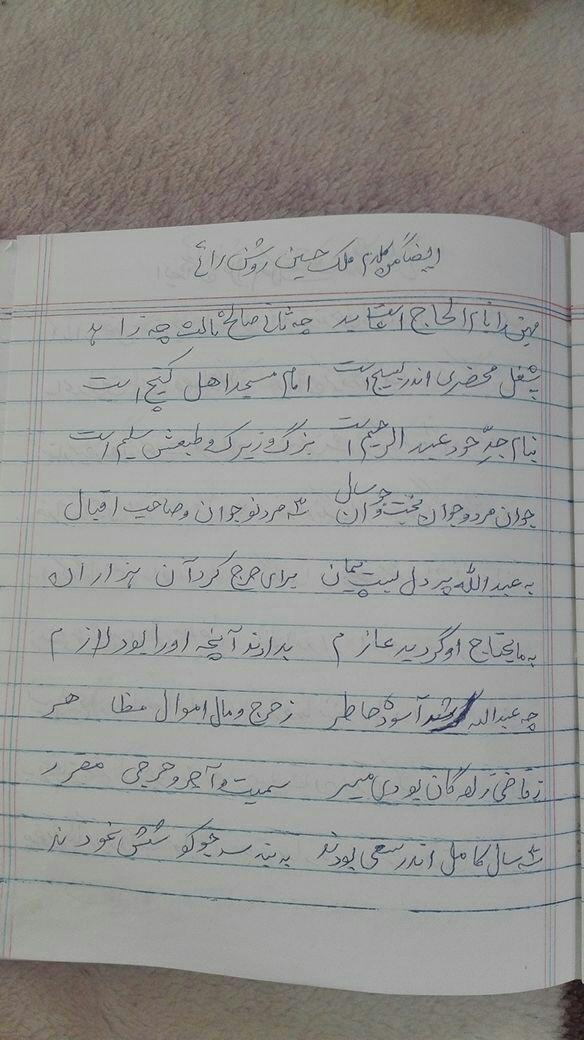 ایضاً من کلام ملک حسین روشن رائے
الحاج است چه ثانی صالح ثالث چه زا هد
بشغل محضری اندر بسیج است امام مسجد اهل کتیج است
بنام جدّ خود عبد الرحیم است بزرگ و زیرک و طبعش سلیم است
جوان مرد و جوان بخت و جوان سال سه مرد نوجوان و صاحب اقبال
به عبدالله پر دل بست پیمان برای خرج کرد آن هزاران
به مایحتاج او گردید عازم بدادند آنچه اورا بود لازم
چه عبدالله بشد آسوده خاطر زخرج و مال اموال مظا هر
ز قاضی زاده گان بودی میسر و خرجی مقرر
سه سال کامل اندر سعی بودند کوشش نمودند